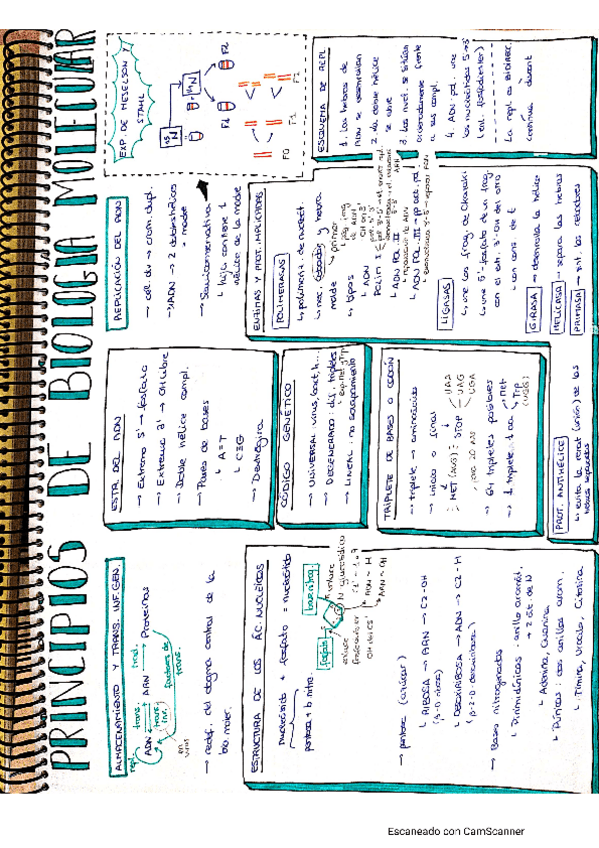 PRINCIPIOS DE BIOLOGIA MOLECULAR
ALMACENAMIENTO Y TRANS. INF. GEN.
repl. trans. trad.
ADN ARN → Proteínas
trans. inv.
en virus
factores de trans.
→ redef. del dogma central de la
bio molec.
ESTRUCTURA DE LOS ÁC. NUCLEICOS
nucleósido + fosfato = nucleótido
pentosa + b. nitro.
fosfato
base nitrog.
enlace
N-glucosídico
C1' - 1 o 9
enlace
fosfoéster
OH del C5'
→ pentosa (azúcar)
↳ RIBOSA → ARN → C2-OH
↳ DESOXIRRIBOSA → ADN → C2-H
→ Bases nitrogenadas
↳ Pirimidínicas: anillo aromát.
+ 2 át. de N
↳ Adenina, Guanina
↳ Púricas: dos anillos arom.
↳ Timina, Uracilo, Citosina
ESTR. DEL ADN
→ Extremo 5' → fosfato
→ Extremo 3' → OH libre
→ Doble hélice compl.
→ Pares de bases
↳ A=T
↳ C≡G
→ Dextrógira
CÓDIGO GENÉTICO
→ UNIVERSAL: virus, bact, h...
→ DEGENERADO: dif. tripletes
exp. Met y Trp
→ LINEAL: no solapamiento
TRIPLETE DE BASES O CODÓN
→ triplete → aminoácidos
→ inicio o final
MET (AUG) STOP
UAA
UAG
UGA
→ 64 tripletes posibles
→ 1 triplete: 1 aa
Met
Trp
(UGG)
PROT. ANTIHÉLICE
↳ evita la renat (unión) de las
hebras separadas
REPLICACIÓN DEL ADN
→ cél. div → crom. dupl.
→ ADN → 2 dobles hélices
= molde
→ Semiconservativa
↳ hija contiene 1
hélice de la madre
EXP. DE MESELSON Y
STAHL
15N
14N
F1
F2
F0 F1 F2
ENZIMAS Y PROT. IMPLICADAS
POLIMERASAS
↳ polimeriz. de nucleót.
↳ nec. cebador y hebra
molde
↳ primer
↳ tipos
↳ ADN
Pol. I
↳ ADN II
↳ ADN pol. III
LIGASAS
↳ une los frag. de Okazaki
↳ une 5'-fosfato de un frag.
con el extr. 3'-OH del otro
↳ con cons. de E
GIRASA → desenrolla la hélice
HELICASA → separa las hebras
PRIMASA → sint. los cebadores
ESQUEMA DE REPL.
1. Las hebras de
ADN se desenrollan
2. La doble hélice
se abre
3. Los nucl. se sitúan
ordenadamente frente
a sus compl.
4. ADN pol. une
los nucleótidos 5'→3'
(enl. fosfodiéster)
La repl. es bidirec.
continua
Escaneado con CamScanner